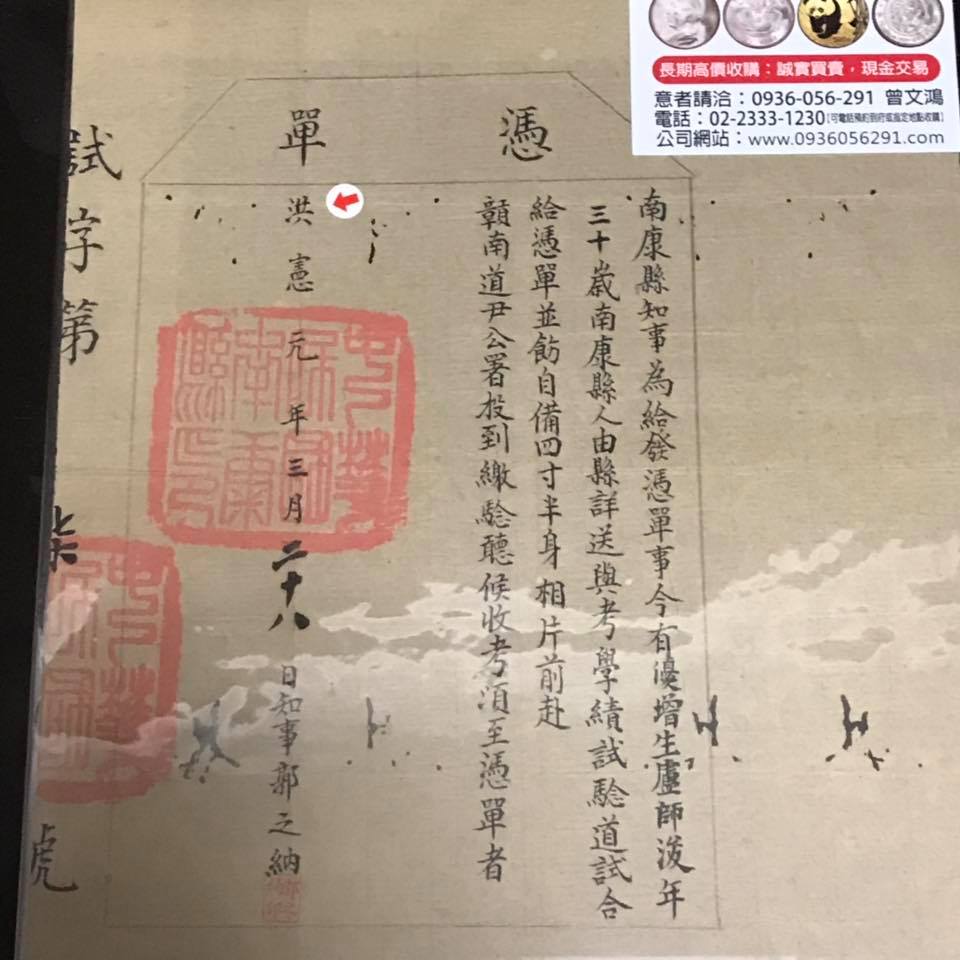 長期高價收購：誠實買賣，現金交易
意者請洽：0936-056-291 曾文鴻
電話：02-2333-1230【可電話預約到府或指定地點收購】
公司網站：www.0936056291.com
憑單
南康縣知事為給發憑單事今有優增生盧師浚年
三十嵗南康縣人由縣詳送與考學績試驗道試合
給憑單並飭自備四寸半身相片前赴
贛南道尹公署投到繳驗聽候收考湏至憑單者
洪憲元年三月二十八日知事郭之納
試字第柒號